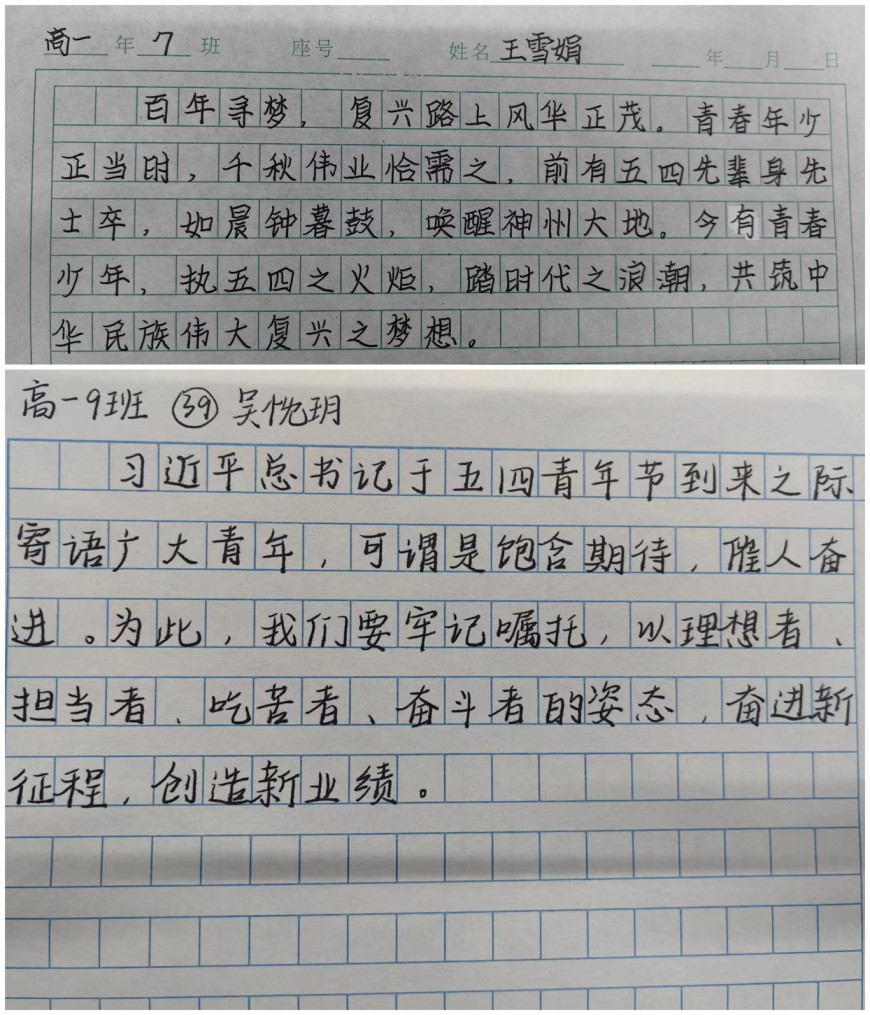 高一 年 7 班 座号 姓名 王雪娟 年 月 日
百年寻梦，复兴路上风华正茂。青春年少
正当时，千秋伟业恰需之，前有五四先辈身先
士卒，如晨钟暮鼓，唤醒神州大地。今有青春
少年，执五四之火炬，踏时代之浪潮，共筑中
华民族伟大复兴之梦想。
高一9班 39 吴忱玥
习近平总书记于五四青年节到来之际
寄语广大青年，可谓是饱含期待，催人奋
进。为此，我们要牢记嘱托，以理想者、
担当者、吃苦者、奋斗者的姿态，奋进新
征程，创造新业绩。